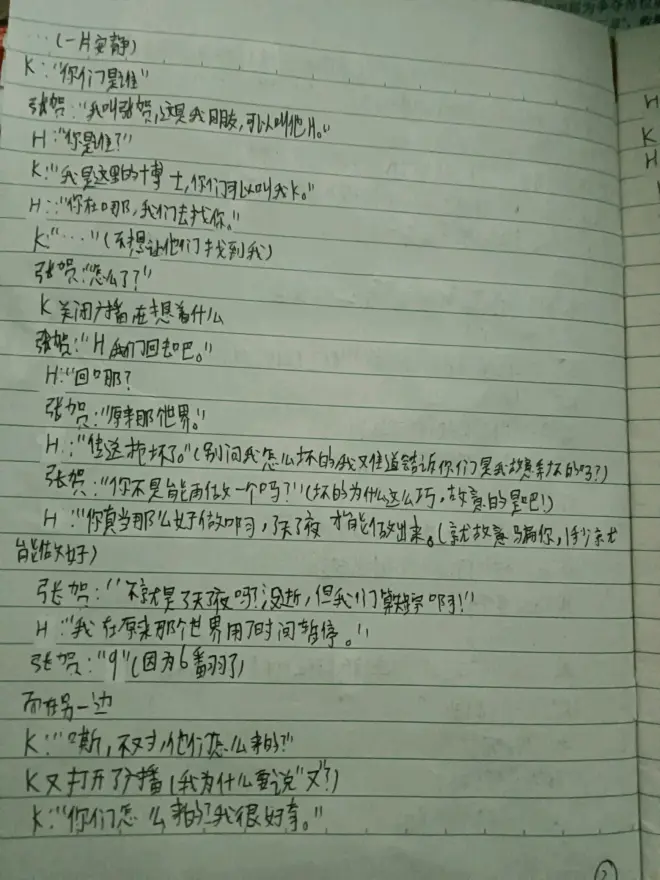 …(一片安静)
K:"你们是谁"
张贺:"我叫张贺,这是我朋友,可以叫他H。"
H:"你是谁?"
K:"我是这里的博士,你们可以叫我K。"
H:"你在哪,我们去找你。"
K:"…"(不想让他们找到我)
张贺:"怎么了?"
K关闭广播在想着什么
张贺:"H我们回去吧。"
H:"回哪?
张贺:"原来那世界。"
H:"传送抢坏了。"(别问我怎么坏的我又难道告诉你们是我故意弄坏的吗?)
张贺:"你不是能再做一个吗?"(坏的为什么这么巧,故意的是吧!)
H:"你真当那么好做啊,3天3夜才能做出来。(就故意骗你,1秒就
能做好)
张贺:"不就是3天3夜吗?没逝,但我们算旷宗啊!"
H:"我在原来那个世界用了时间暂停。"
张贺:"9"(因为6翻了)
而在另一边
K:"嘶,不对,他们怎么来的?"
K又打开了广播(我为什么要说"又"?)
K:"你们怎么来的?我很好奇。"
2